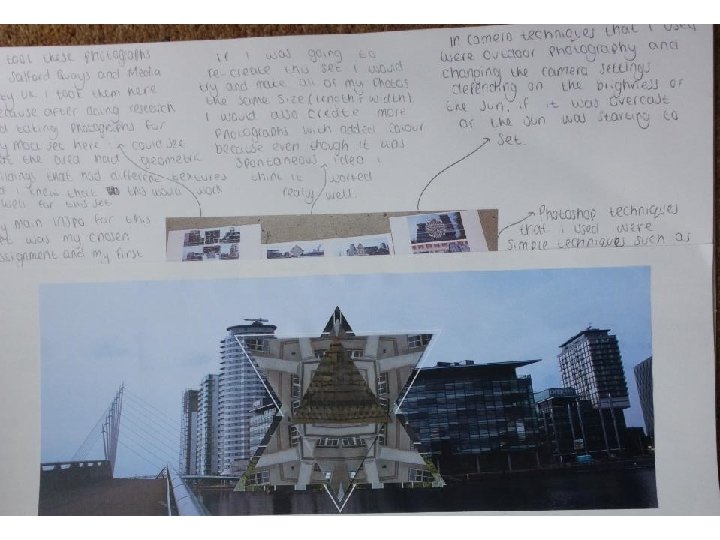 took these photographs
Salford Quays and Media
City UK. I took them here
because after doing research
and taking photographs for
my most set here i could see
that the area had geometric
buildings that had different textures
I knew that this would work
well for this set
my main inspo for this
set was my chosen
assignment and my first
if I was going to
re-create this set I would
try and make all of my photos
the same size (length & width)
I would also create more
photographs with added colour
because even though it was
spontaneous idea i
think it worked
really well.
In camera techniques that I used
were outdoor photography and
changing the camera settings
depending on the brightness of
the sun, if it was overcast
or the sun was starting to
set.
Photoshop techniques
that i used were
simple techniques such as